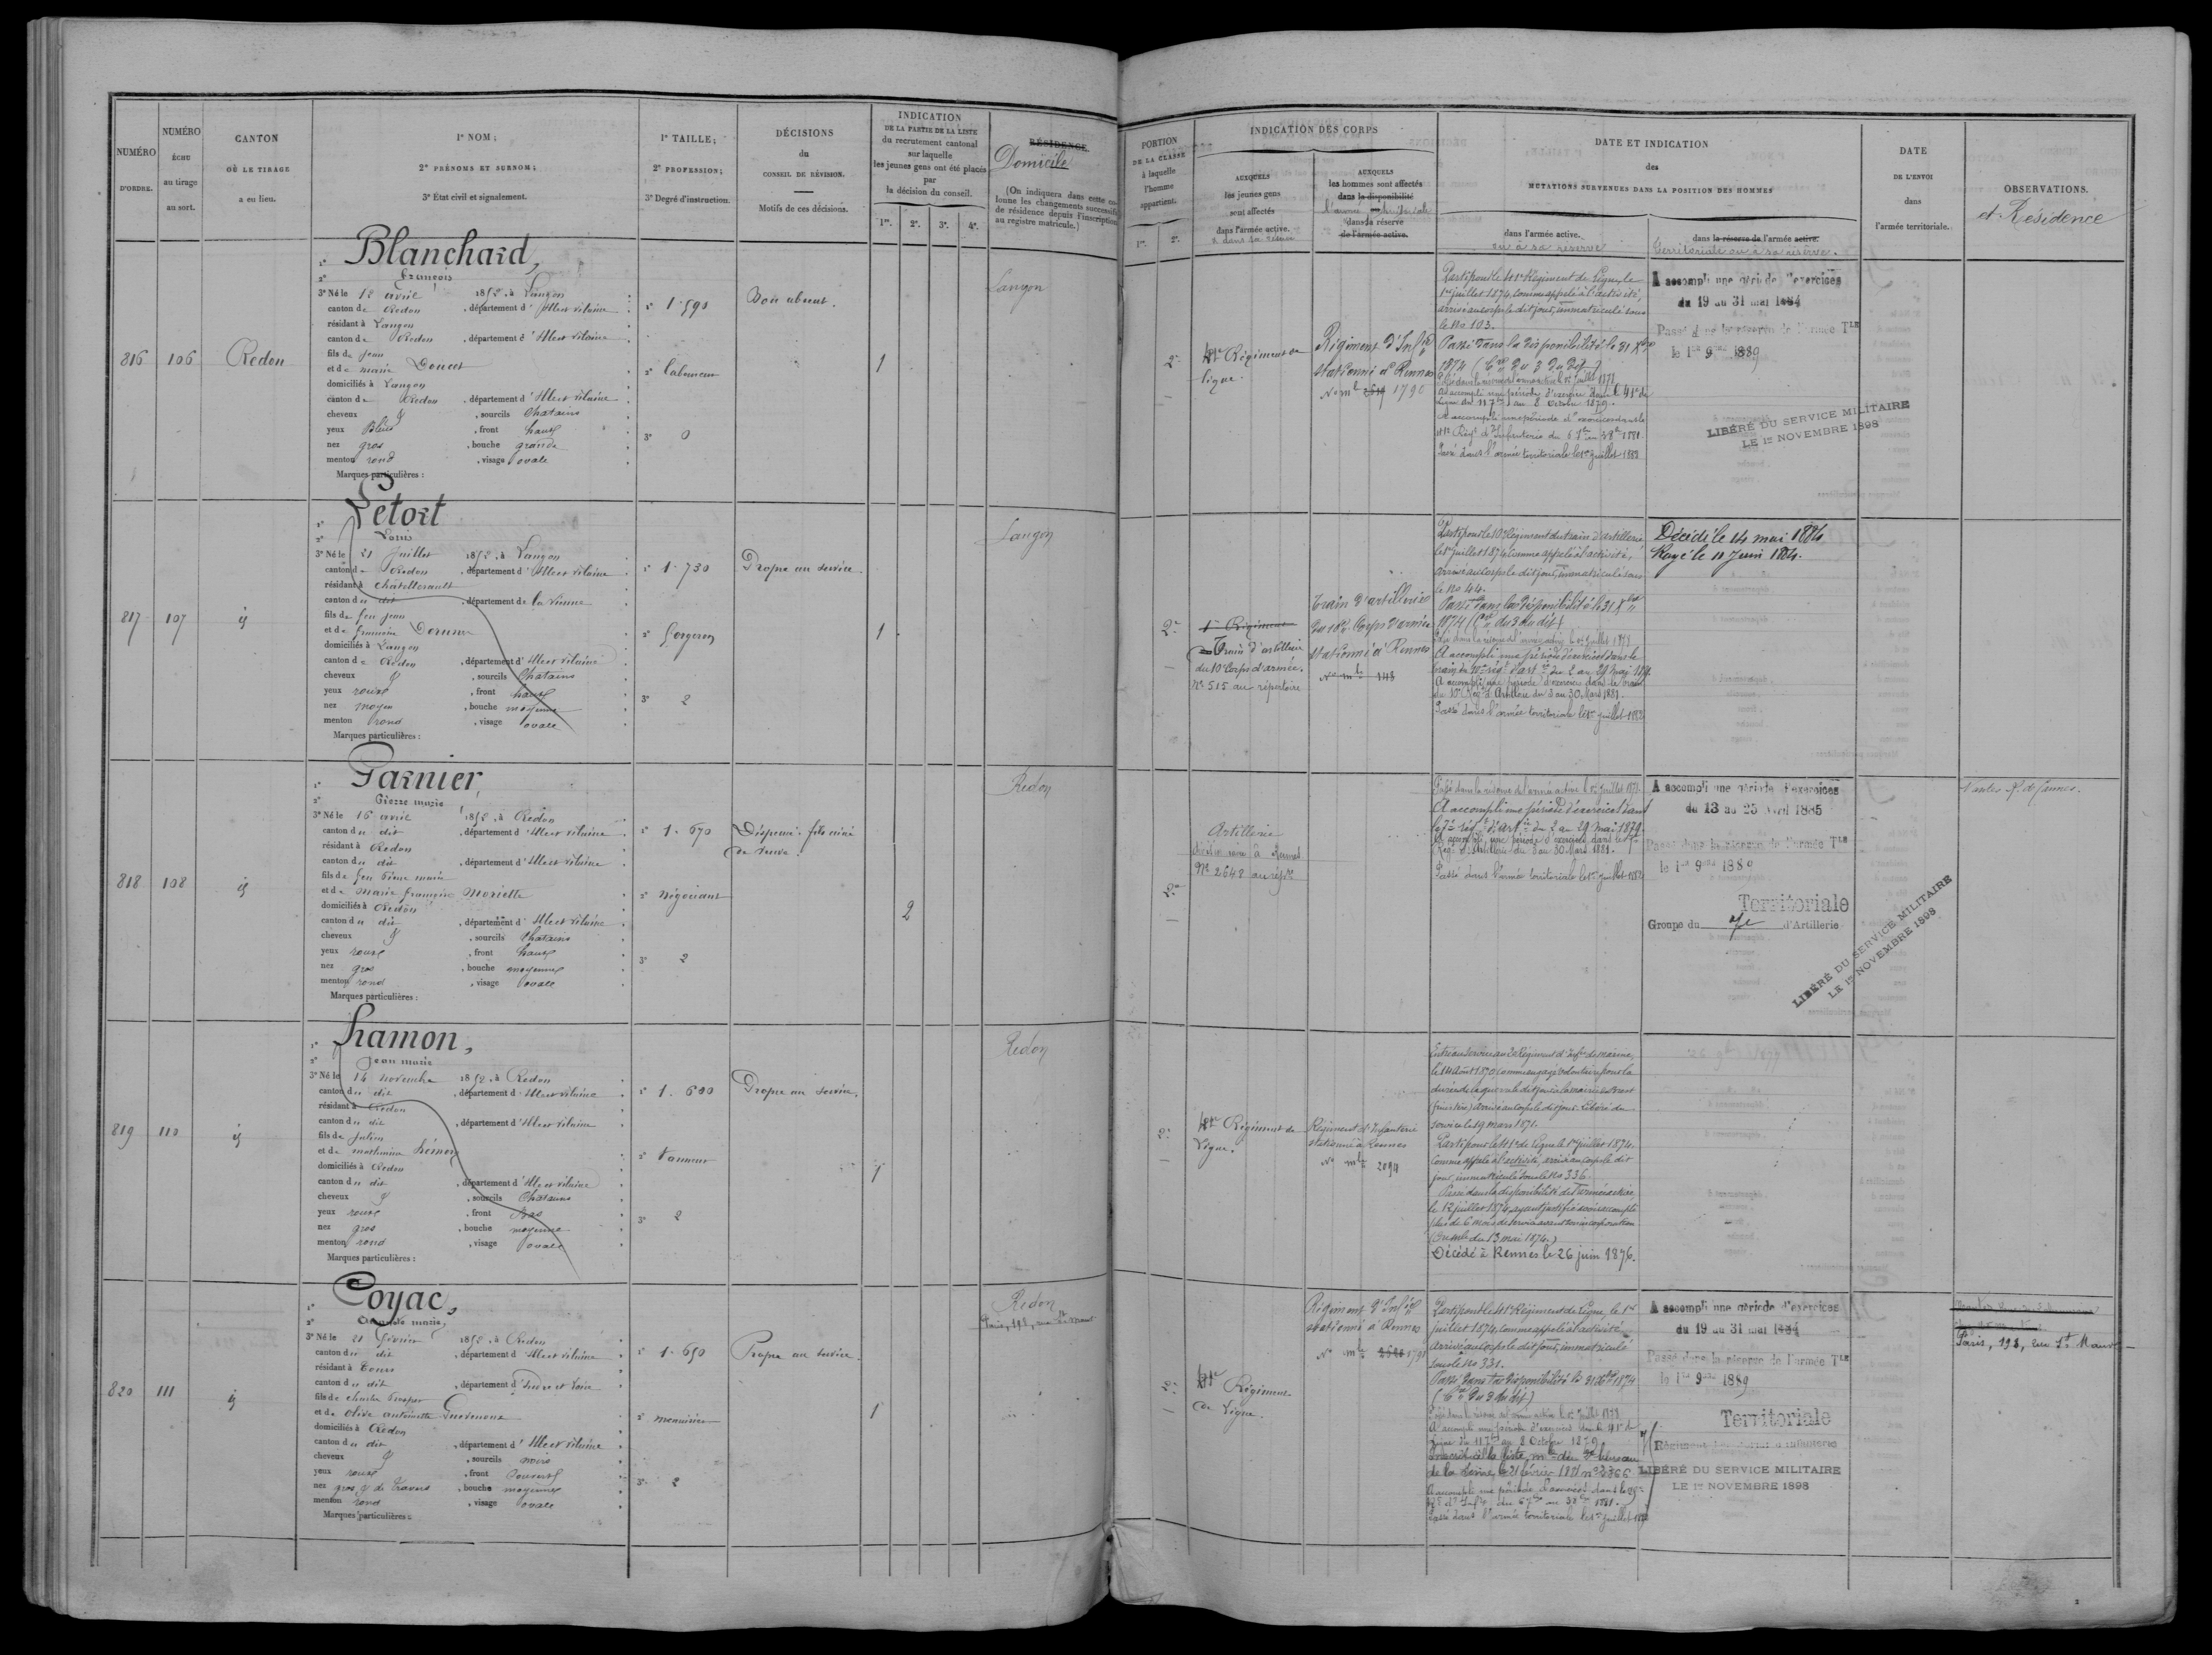 NUMÉRO
D'ORDRE.
NUMÉRO
ÉCHU
au tirage
au sort.
CANTON
OÙ LE TIRAGE
a eu lieu.
1º NOM;
2º PRÉNOMS ET SURNOM;
3º État civil et signalement.
1º TAILLE;
2º PROFESSION;
3º Degré d'instruction.
DÉCISIONS
du
CONSEIL DE RÉVISION.
Motifs de ces décisions.
INDICATION
DE LA PARTIE DE LA LISTE
du recrutement cantonal
sur laquelle
les jeunes gens ont été placés
par
la décision du conseil.
1re. 2e. 3e. 4e.
RÉSIDENCE.
Domicile
(On indiquera dans cette co-
lonne les changements successifs
de résidence depuis l'inscription
au registre matricule.)
PORTION
DE LA CLASSE
à laquelle
l'homme
appartient.
1re. 2e.
INDICATION DES CORPS
AUXQUELS
les jeunes gens
sont affectés
dans l'armée active.
& dans sa réserve
AUXQUELS
les hommes sont affectés
dans la disponibilité
l'armée territoriale
dans la réserve
de l'armée active.
DATE ET INDICATION
des
MUTATIONS SURVENUES DANS LA POSITION DES HOMMES
dans l'armée active.
ou à sa réserve
dans la réserve de l'armée active.
Territoriale ou à sa réserve.
DATE
DE L'ENVOI
dans
l'armée territoriale.
OBSERVATIONS.
et Résidence
816 106 Redon
1º Blanchard,
2º François
3º Né le 12 avril 1852, à Langon
canton de Redon, département d'Ille et Vilaine
résidant à Langon
canton de Redon, département d'Ille et Vilaine
fils de Jean
et de Marie Doucet
domiciliés à Langon
canton de Redon, département d'Ille et Vilaine
cheveux & , sourcils Chatains
yeux Bleus, front haut
nez gros, bouche grande
menton rond, visage ovale
Marques particulières:
1º 1.590
2º laboureur
3º 0
Bon absent.
1
Langon
2e
41e Régiment de
ligne.
Régiment d'Infie
stationné à Rennes
No mle 2619 1790
Parti pour le 41e Régiment de Ligne, le
1er juillet 1874, comme appelé à l'activité,
arrivé au corps le dit jour, immatriculé sous
le No 103.
Passé dans la disponibilité le 31 Xbre
1874
Passé dans la réserve de l'armée active le 1er juillet 1878
A accompli une période d'exercices dans le 41e de
Ligne du 11 7bre au 8 Octobre 1879.
A accompli une période d'exercices dans le
41e Régt d'Infanterie
Passé dans l'armée territoriale le 1er juillet 1883
A accompli une période d'exercices
du 19 au 31 mai 1884
Passé dans la réserve de l'armée Tle
le 1er 9bre 1889
LIBÉRÉ DU SERVICE MILITAIRE
LE 1er NOVEMBRE 1898
817 107 id
1º Letort
2º Louis
3º Né le 21 Juillet 1852, à Langon
canton de Redon, département d'Ille et Vilaine
résidant à Châtellerault
canton du dit, département de la Vienne
fils de feu Jean
et de
domiciliés à Langon
canton de Redon, département d'Ille et Vilaine
cheveux & , sourcils Chatains
yeux roux, front haut
nez moyen, bouche moyenne
menton rond, visage ovale
Marques particulières:
1º 1.730
2º forgeron
3º 2
Propre au service.
1
Langon
2e
1er Régiment
Train d'artillerie
du 10e Corps d'armée.
No 515 au répertoire
Train d'artillerie
du 10e Corps d'armée
stationné à Rennes
No mle 148
Parti pour le 10e Régiment du train d'artillerie
le 1er juillet 1874, comme appelé à l'activité,
arrivé au corps le dit jour, immatriculé sous
le No 44.
Passé dans la disponibilité le 31 Xbre
1874
Passé dans la réserve de l'armée active le 1er juillet 1878
A accompli une période d'exercices dans le
train du 10e régt d'artie du 2 au 29 mai 1879.
A accompli une période d'exercices dans le train
du 10e Régt d'Artillerie du 3 au 30 Mars 1881.
Passé dans l'armée territoriale le 1er juillet 1883
Décédé le 14 mai 1884
Rayé le 10 Juin 1884.
818 108 id
1º Garnier,
2º Pierre Marie
3º Né le 16 avril 1852, à Redon
canton du dit, département d'Ille et Vilaine
résidant à Redon
canton du dit, département d'Ille et Vilaine
fils de feu Pierre Marie
et de Marie Françoise Moriette
domiciliés à Redon
canton du dit, département d'Ille et Vilaine
cheveux & , sourcils Chatains
yeux roux, front haut
nez gros, bouche moyenne
menton rond, visage ovale
Marques particulières:
1º 1.670
2º négociant
3º 2
Dispensé. fils aîné
de veuve.
2
Redon
2e
Artillerie
à Rennes
No 2642 au répre
Passé dans la réserve de l'armée active le 1er juillet 1878.
A accompli une période d'exercices dans
le 7e régt d'artie du 2 au 29 mai 1879.
A accompli une période d'exercices dans le 7e
Régt d'Artillerie du 3 au 30 Mars 1881.
Passé dans l'armée territoriale le 1er juillet 1883
A accompli une période d'exercices
du 13 au 25 Avril 1885
Passé dans la réserve de l'armée Tle
le 1er 9bre 1889
Territoriale
Groupe du 7e d'Artillerie
LIBÉRÉ DU SERVICE MILITAIRE
LE 1er NOVEMBRE 1898
Nantes
819 110 id
1º Hamon,
2º Jean Marie
3º Né le 14 novembre 1852, à Redon
canton du dit, département d'Ille et Vilaine
résidant à Redon
canton du dit, département d'Ille et Vilaine
fils de Julien
et de Mathurine Hémon
domiciliés à Redon
canton du dit, département d'Ille et Vilaine
cheveux & , sourcils Chatains
yeux roux, front Bas
nez gros, bouche moyenne
menton rond, visage ovale
Marques particulières:
1º 1.600
2º Vanneur
3º 2
Propre au service.
1
Redon
2e
41e Régiment de
Ligne.
Régiment d'Infanterie
stationné à Rennes
No mle 2094
Entré au service au 2e Régiment d'Infie de marine,
le 14 Août 1870 comme engagé volontaire pour la
durée de la guerre le dit jour à la mairie de Brest
(finistère) arrivé au corps le dit jour. Libéré du
service le 19 mars 1871.
Parti pour le 41e de Ligne le 1er juillet 1874.
Comme appelé à l'activité, arrivé au corps le dit
jour, immatriculé sous le No 336.
Passé dans la disponibilité de l'armée active,
le 12 juillet 1874, ayant justifié avoir accompli
plus de 6 mois de service avant son incorporation
du 13 mai 1874.)
Décédé à Rennes le 26 juin 1876.
820 111 id
1º Coyac,
2º Auguste Marie,
3º Né le 21 février 1852, à Redon
canton du dit, département d'Ille et Vilaine
résidant à Tours
canton du dit, département d'Indre et Loire
fils de Charles Prosper
et de Olive Antoinette
domiciliés à Redon
canton du dit, département d'Ille et Vilaine
cheveux & , sourcils noirs
yeux roux, front Couvert
nez gros & de travers, bouche moyenne
menton rond, visage ovale
Marques particulières:
1º 1.650
2º menuisier
3º 2
Propre au service.
1
Redon
Paris, 198, rue St Maur
2e
41e Régiment
de Ligne.
Régiment d'Infie
stationné à Rennes
No mle 1791
Parti pour le 41e Régiment de Ligne, le 1er
juillet 1874, comme appelé à l'activité,
arrivé au corps le dit jour, immatriculé
sous le No 331.
Passé dans la disponibilité le 31 Xbre 1874
Passé dans la réserve de l'armée active le 1er juillet 1878
A accompli une période d'exercices dans le 41e de
Ligne du 11 7bre au 8 Octobre 1879
de la Seine, le 21 février 1881 no 2366
A accompli une période d'exercices dans le
Passé dans l'armée territoriale le 1er juillet 1883
A accompli une période d'exercices
du 19 au 31 mai 1884
Passé dans la réserve de l'armée Tle
le 1er 9bre 1889
Territoriale
Régiment territorial d'infanterie
LIBÉRÉ DU SERVICE MILITAIRE
LE 1er NOVEMBRE 1898
Paris, 198, rue St Maur